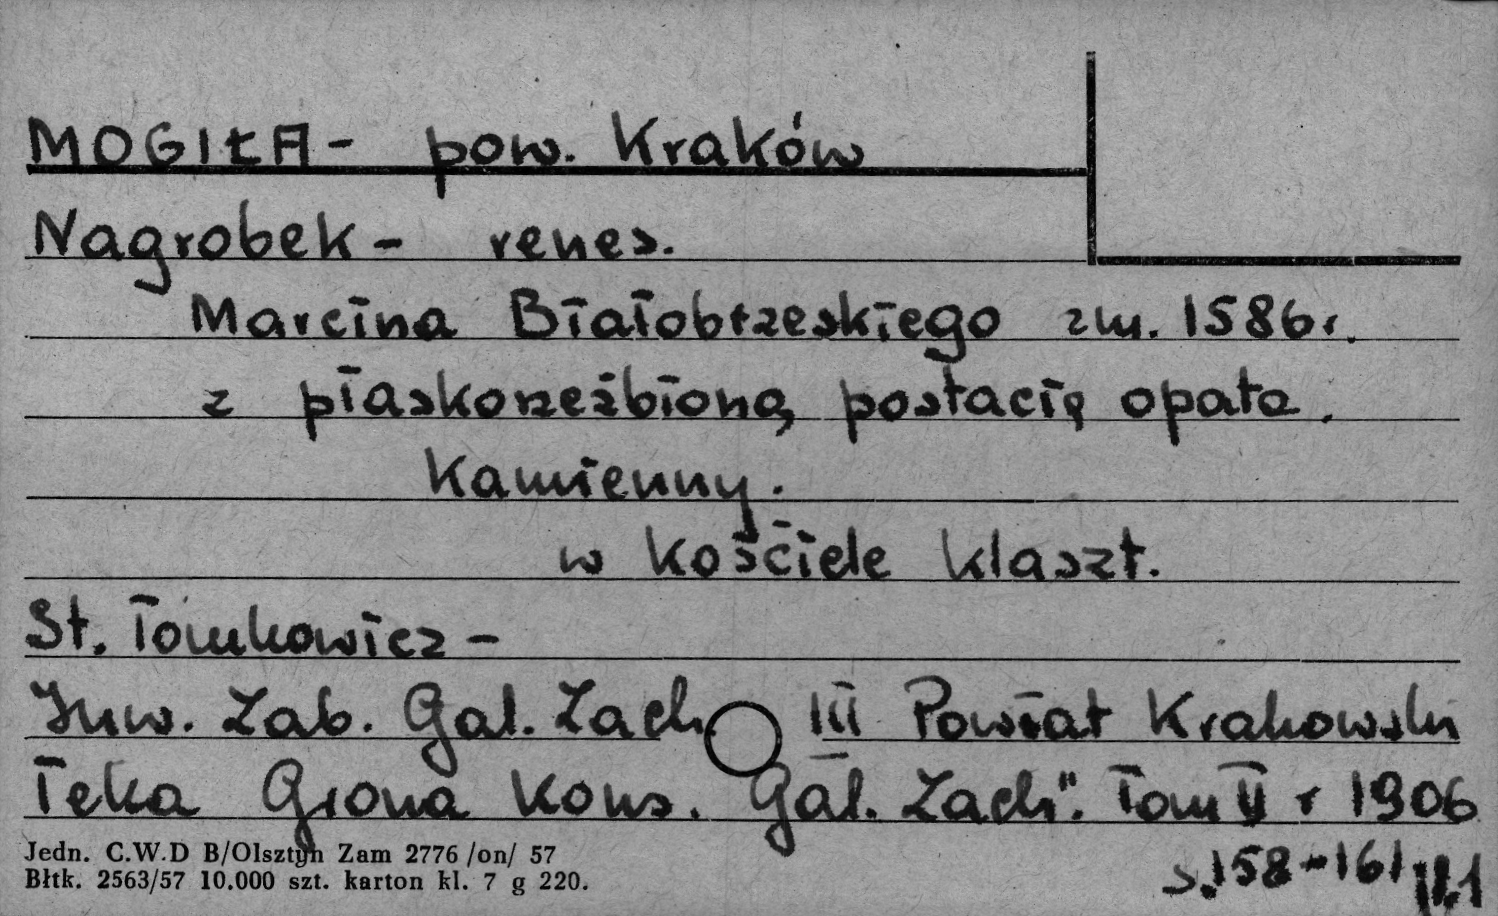 MOGIŁA - pow. Kraków
Nagrobek - renes.
Marcina Białobrzeskiego zm. 1586 r.
z płaskorzeźbioną postacią opata.
Kamienny.
w kościele klaszt.
St. Tomkowicz -
Inw. Zab. Gal. Zach. III Powiat Krakowski
Teka Grona Kons. Gal. Zach". Tom II r 1906
s. 158-161
Jedn. C.W.D B/Olsztyn Zam 2776 /on/ 57
Błtk. 2563/57 10.000 szt. karton kl. 7 g 220.